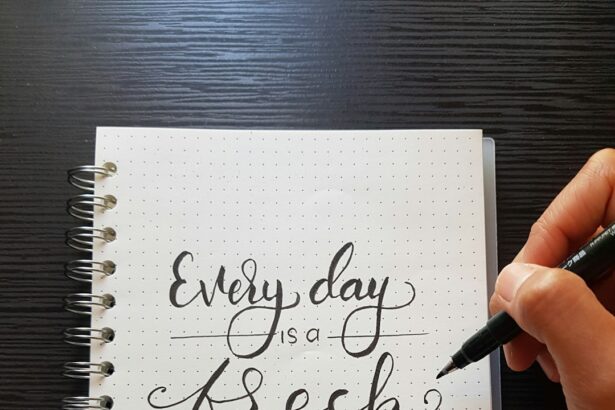 Every day
is a
fresh